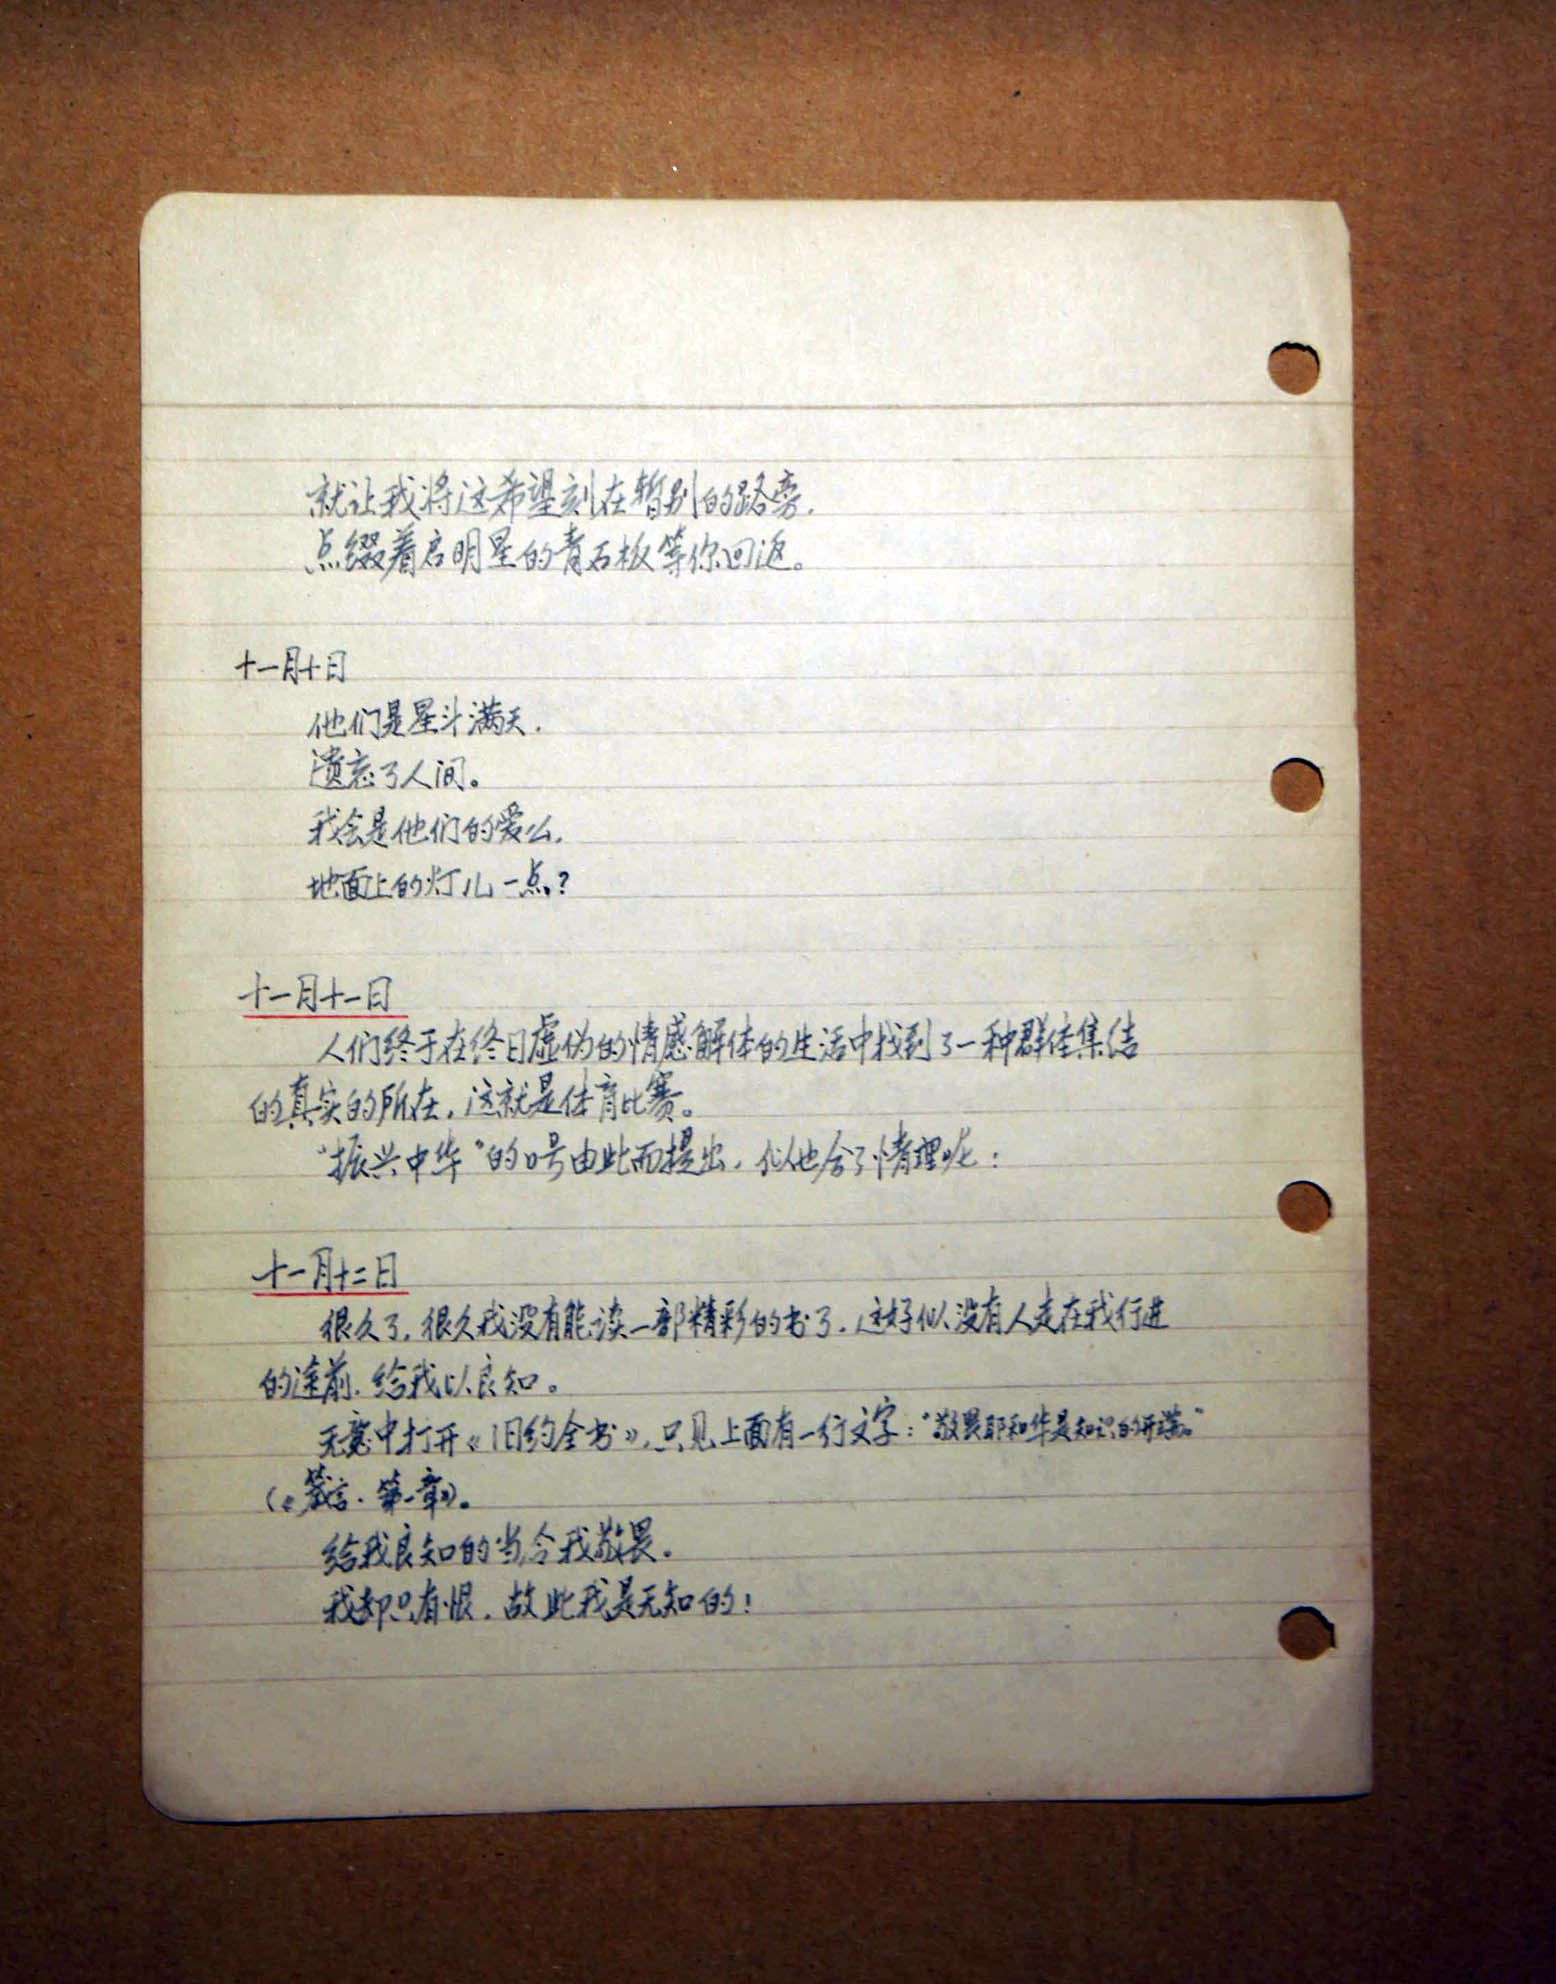 就让我将这希望刻在暂别的路旁.
点缀着启明星的青石板等你回返。
十一月十日
他们是星斗满天.
遗忘了人间。
我会是他们的爱么.
地面上的灯儿一点?
十一月十一日
人们终于在终日虚伪的情感解体的生活中找到了一种群体集结
的真实的所在,这就是体育比赛。
“振兴中华”的口号由此而提出,似也合了情理呢:
十一月十二日
很久了,很久我没有能读一部精彩的书了.这好似没有人走在我行进
的途前.给我以良知。
无意中打开《旧约全书》,只见上面有一行文字:“敬畏耶和华是知识的开端。”
(《箴言·第一章》)。
给我良知的当令我敬畏.
我却只有恨.故此我是无知的!